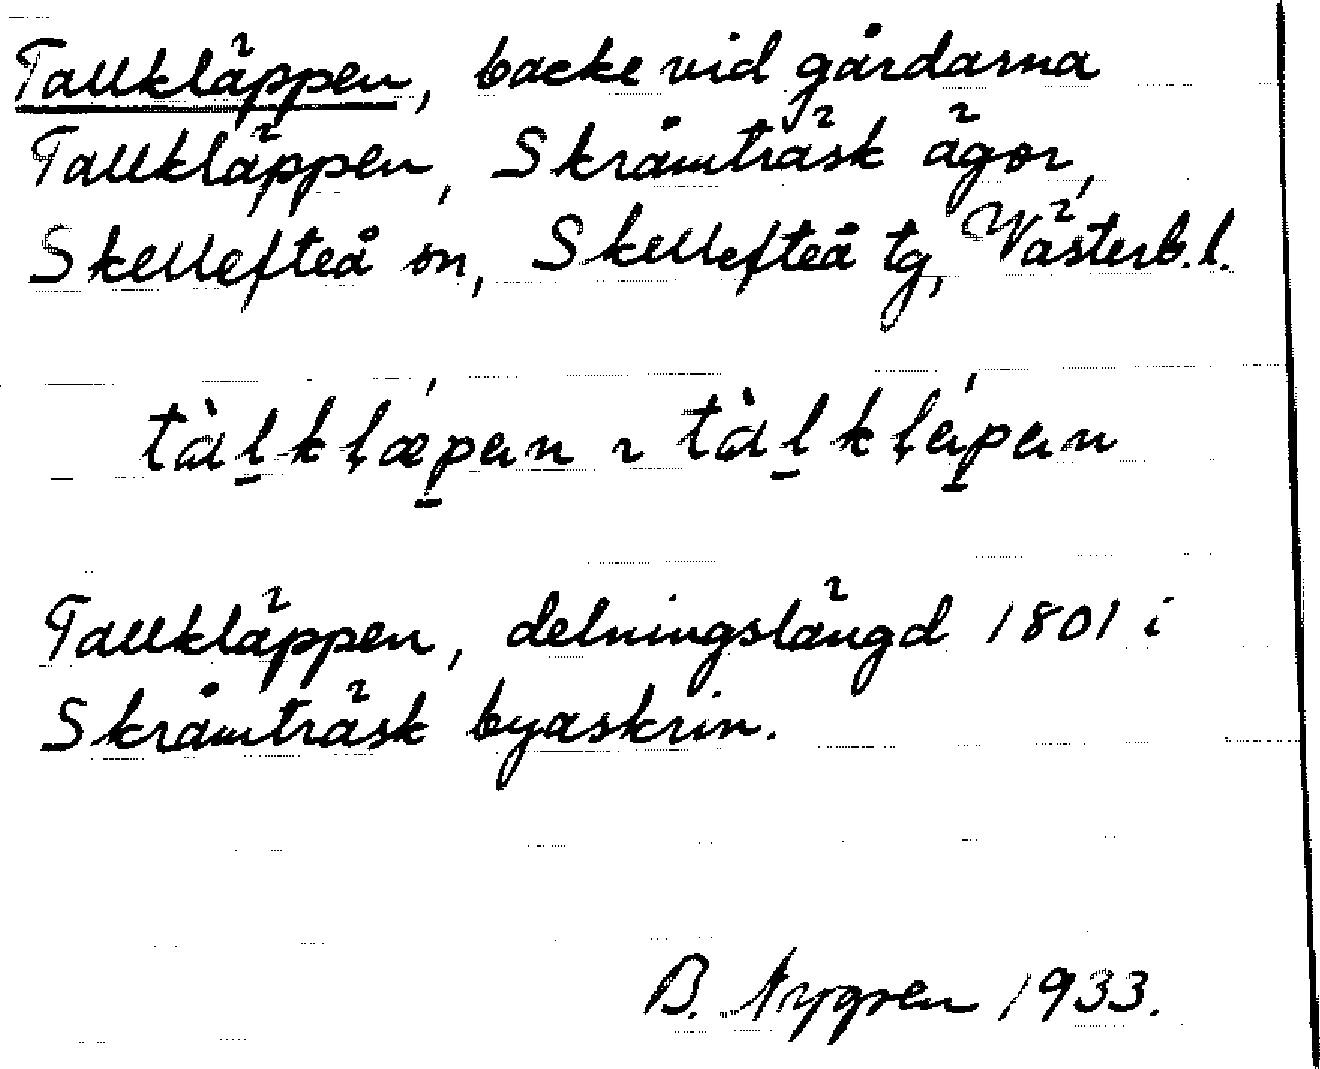 Tallkläppen, backe vid gårdarna
Tallkläppen, Skråmträsk ägor,
Skellefteå sn, Skellefteå tg, Västerb. l.
tàl̠klǽp̠ən ~ tàl̠kláp̠ən
Tallkläppen, delningslängd 1801 i
Skråmträsk byaskrin.
B. Nygren 1933.